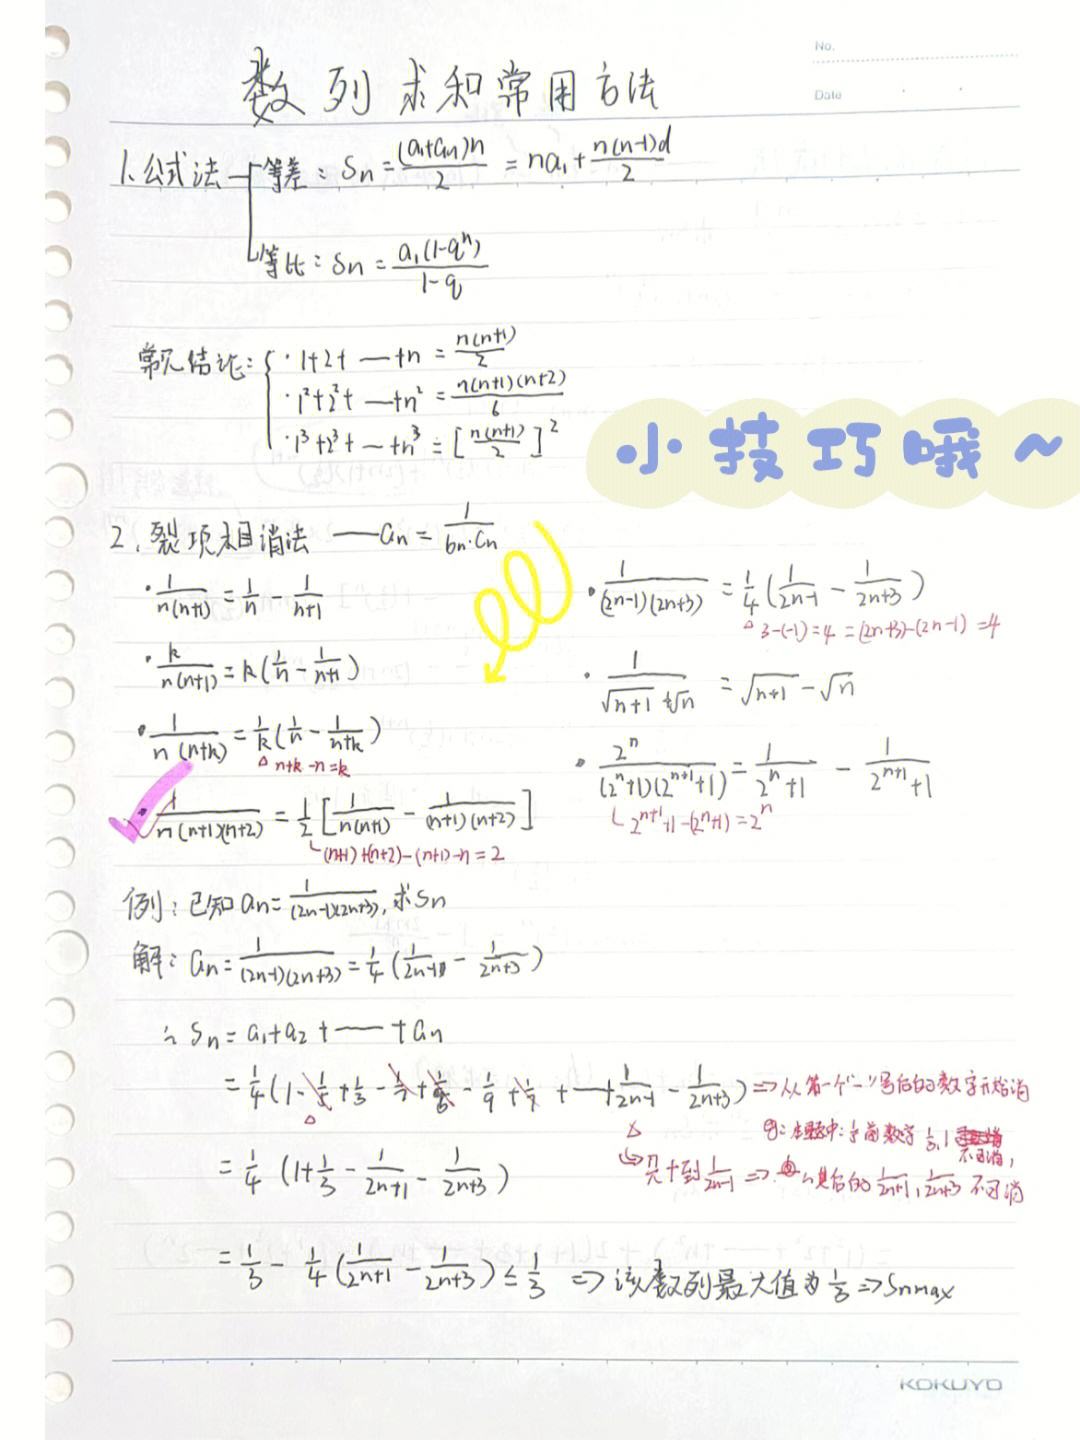 No.
Date
数列求和常用方法
1.公式法 等差：Sn=(a1+an)n/2=na1+n(n-1)d/2
等比：Sn=a1(1-q^n)/1-q
常见结论：
·1+2+—+n=n(n+1)/2
·1²+2²+—+n²=n(n+1)(n+2)/6
·1³+2³+—+n³=[n(n+1)/2]²
小技巧哦~
2.裂项相消法——an=1/bn·cn
·1/n(n+1)=1/n-1/n+1
·k/n(n+1)=k(1/n-1/n+1)
·1/n(n+k)=1/k(1/n-1/n+k)
△n+k-n=k
·1/n(n+1)(n+2)=1/2[1/n(n+1)-1/(n+1)(n+2)]
(n+1)+(n+2)-(n+1)-n=2
·1/(2n-1)(2n+3)=1/4(1/2n-1-1/2n+3)
△3-(-1)=4=(2n+3)-(2n-1)=4
·1/√n+1+√n=√n+1-√n
·2^n/(2^n+1)(2^(n+1)+1)=1/2^n+1-1/2^(n+1)+1
2^(n+1)+1-(2^n+1)=2^n
例：已知an=1/(2n-1)(2n+3),求Sn
解：an=1/(2n-1)(2n+3)=1/4(1/2n-1-1/2n+3)
∴Sn=a1+a2+—+an
=1/4(1-1/5+1/3-1/7+1/5-1/9+1/7+—+1/2n-1-1/2n+3)⇒从第一个"-"号后的数字开始消
=1/4(1+1/3-1/2n+1-1/2n+3)
不可消，
到1/2n-1⇒ 其后的1/2n+1,1/2n+3不可消
=1/3-1/4(1/2n+1-1/2n+3)≤1/3⇒该数列最大值为1/3⇒Snmax
KOKUYO